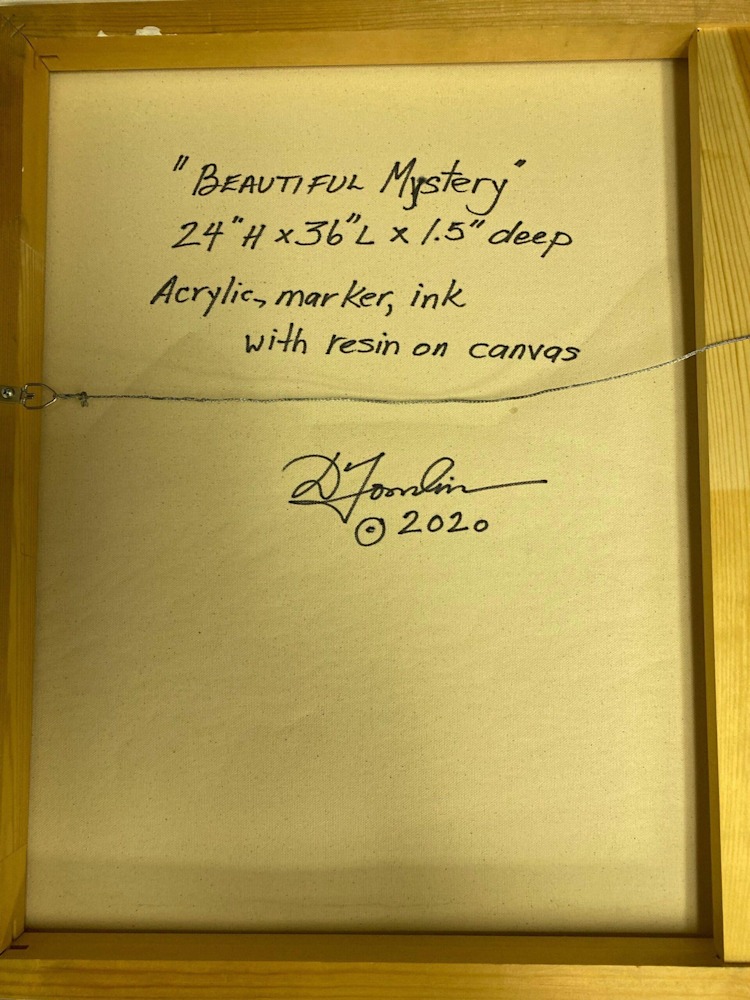 "BEAUTIFUL Mystery"
24"H x 36"L x 1.5" deep
Acrylic, marker, ink
with resin on canvas
D Tomlin
© 2020